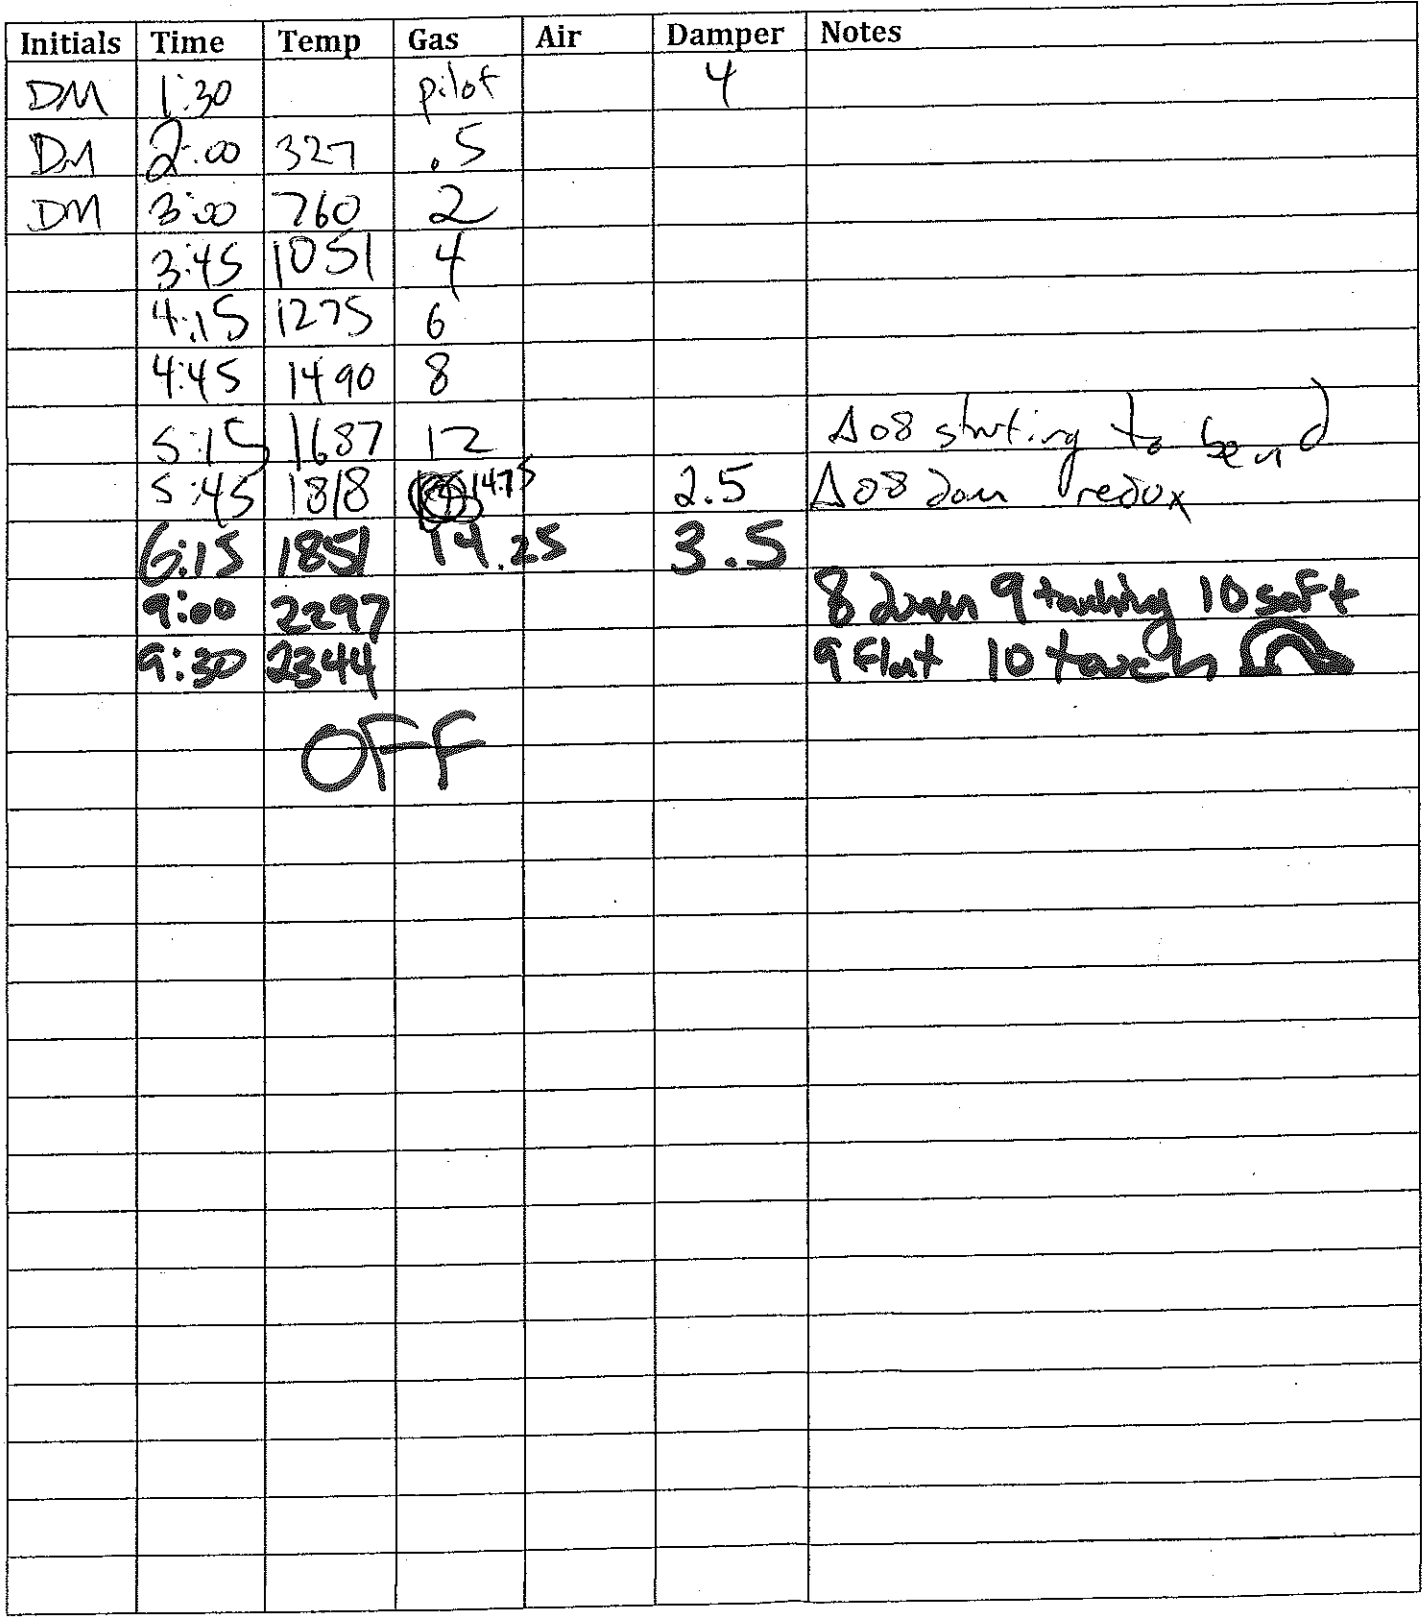 Initials Time Temp Gas Air Damper Notes
DM 1:30 pilot 4
DM 2:00 327 .5
DM 3:00 760 2
3:45 1051 4
4:15 1275 6
4:45 1490 8
5:15 1687 12 Δ08 starting to bend
5:45 1818 14.75 2.5 Δ08 down redox
6:15 1851 14.25 3.5
9:00 2297 8 down 9 touching 10 soft
9:30 2344 9 flat 10 touch
OFF